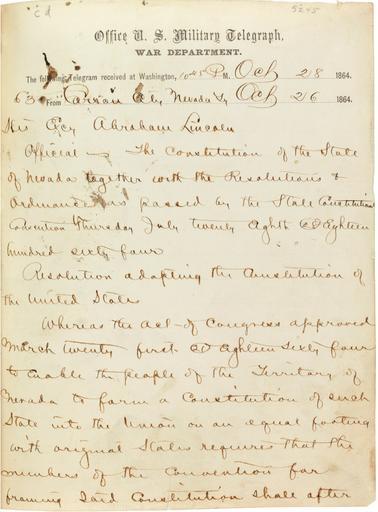 cd
5245
Office U. S. Military Telegraph,
WAR DEPARTMENT.
The following Telegram received at Washington, 1045 P M. Oct 28 1864.
63 From Carson City Nevada Ty Oct 26 1864.
His Ecy Abraham Lincoln
Official — The Constitution of the State
of Nevada together with the Resolutions &
Ordinances as passed by the State Constitutional
Convention Thursday July twenty Eighth AD Eighteen
hundred sixty four
Resolution adopting the Constitution of
the United States
Whereas the act of Congress approved
March twenty first AD Eighteen Sixty four
to enable the people of the Territory of
Nevada to form a Constitution of such
State into the Union on an equal footing
with original States requires that the
members of the Convention for
framing Said Constitution shall after